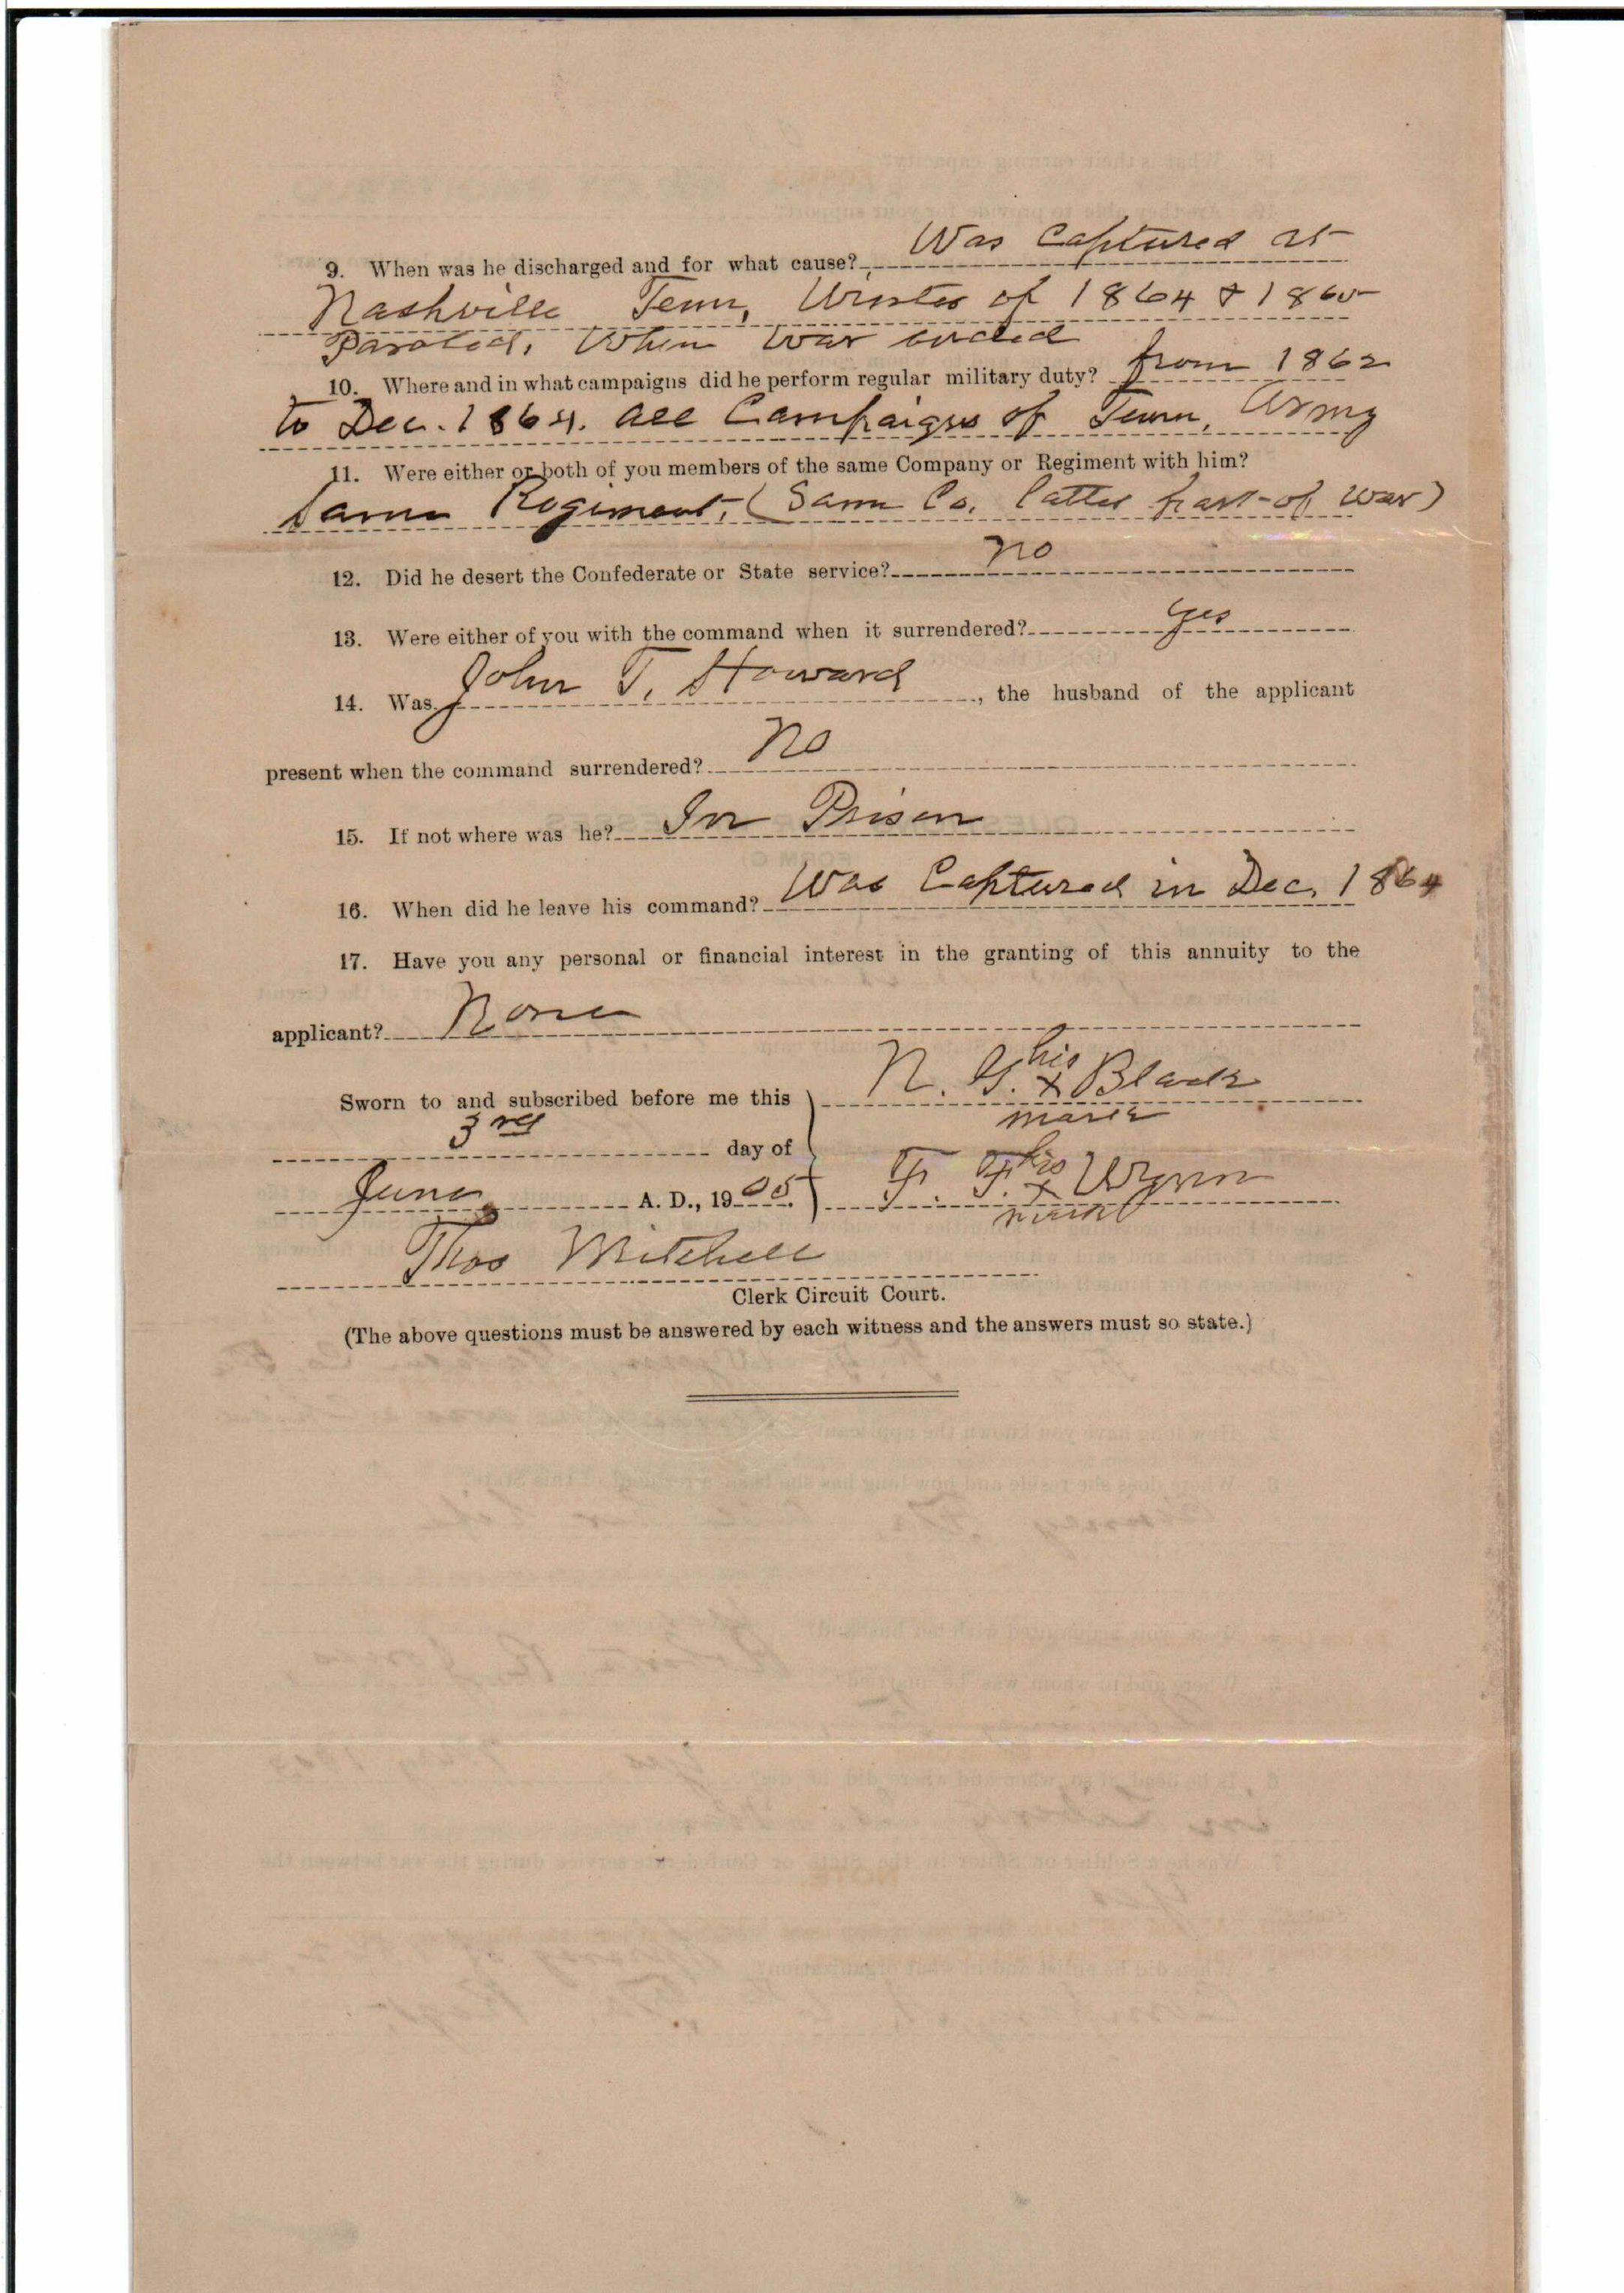 9. When was he discharged and for what cause? Was Captured at
Nashville Tenn, Winter of 1864 & 1865
Paroled, When War ended
10. Where and in what campaigns did he perform regular military duty? from 1862
to Dec. 1864. all Campaigns of Tenn, Army
11. Were either or both of you members of the same Company or Regiment with him?
Same Regiment, (Same Co. latter part of war)
12. Did he desert the Confederate or State service? no
13. Were either of you with the command when it surrendered? yes
14. Was John T. Howard, the husband of the applicant
present when the command surrendered? No
15. If not where was he? In Prison
16. When did he leave his command? Was Captured in Dec, 1864
17. Have you any personal or financial interest in the granting of this annuity to the
applicant? None
Sworn to and subscribed before me this
3rd day of
June A. D., 1905.
N. G. his x Black
mark
F. F. his x Wynn
mark
Thos Mitchell
Clerk Circuit Court.
(The above questions must be answered by each witness and the answers must so state.)